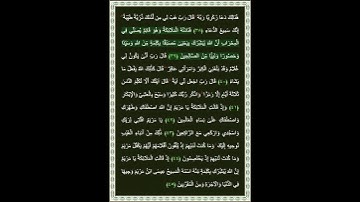 هُنَالِكَ دَعَا زَكَرِيَّا رَبَّهُ قَالَ رَبِّ هَبْ لِي مِن لَّدُنكَ ذُرِّيَّةً طَيِّبَةً
إِنَّكَ سَمِيعُ الدُّعَاءِ (٣٨) فَنَادَتْهُ الْمَلَائِكَةُ وَهُوَ قَائِمٌ يُصَلِّي فِي
الْمِحْرَابِ أَنَّ اللَّهَ يُبَشِّرُكَ بِيَحْيَىٰ مُصَدِّقًا بِكَلِمَةٍ مِّنَ اللَّهِ وَسَيِّدًا
وَحَصُورًا وَنَبِيًّا مِّنَ الصَّالِحِينَ (٣٩) قَالَ رَبِّ أَنَّىٰ يَكُونُ لِي
غُلَامٌ وَقَدْ بَلَغَنِيَ الْكِبَرُ وَامْرَأَتِي عَاقِرٌ قَالَ كَذَٰلِكَ اللَّهُ يَفْعَلُ مَا
يَشَاءُ (٤٠) قَالَ رَبِّ اجْعَل لِّي آيَةً قَالَ آيَتُكَ أَلَّا تُكَلِّمَ النَّاسَ
ثَلَاثَةَ أَيَّامٍ إِلَّا رَمْزًا وَاذْكُر رَّبَّكَ كَثِيرًا وَسَبِّحْ بِالْعَشِيِّ وَالْإِبْكَارِ
(٤١) وَإِذْ قَالَتِ الْمَلَائِكَةُ يَا مَرْيَمُ إِنَّ اللَّهَ اصْطَفَاكِ وَطَهَّرَكِ
وَاصْطَفَاكِ عَلَىٰ نِسَاءِ الْعَالَمِينَ (٤٢) يَا مَرْيَمُ اقْنُتِي لِرَبِّكِ
وَاسْجُدِي وَارْكَعِي مَعَ الرَّاكِعِينَ (٤٣) ذَٰلِكَ مِنْ أَنبَاءِ الْغَيْبِ
نُوحِيهِ إِلَيْكَ وَمَا كُنتَ لَدَيْهِمْ إِذْ يُلْقُونَ أَقْلَامَهُمْ أَيُّهُمْ يَكْفُلُ مَرْيَمَ
وَمَا كُنتَ لَدَيْهِمْ إِذْ يَخْتَصِمُونَ (٤٤) إِذْ قَالَتِ الْمَلَائِكَةُ يَا مَرْيَمُ
إِنَّ اللَّهَ يُبَشِّرُكِ بِكَلِمَةٍ مِّنْهُ اسْمُهُ الْمَسِيحُ عِيسَى ابْنُ مَرْيَمَ وَجِيهًا
فِي الدُّنْيَا وَالْآخِرَةِ وَمِنَ الْمُقَرَّبِينَ (٤٥)